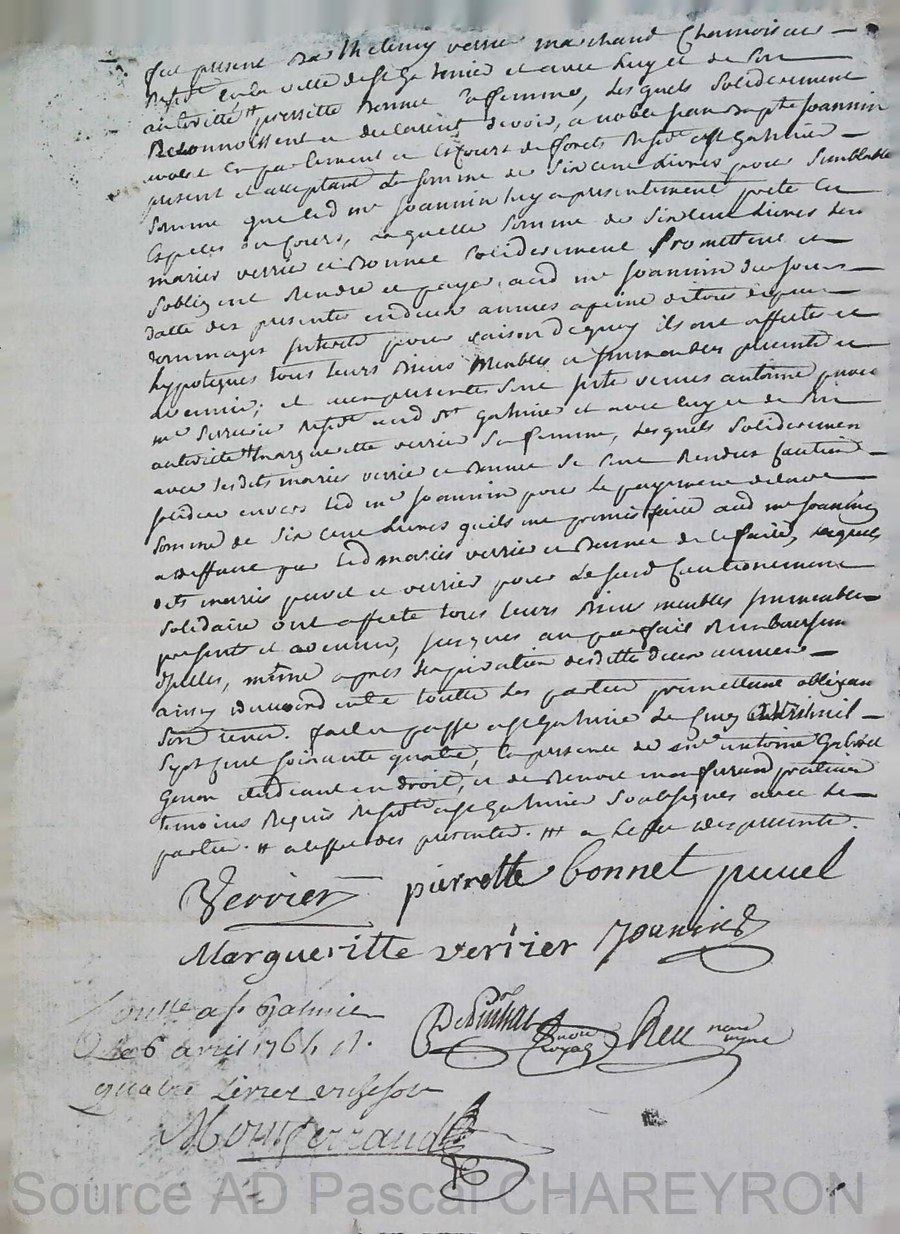 fut present Barthelemy verrier marchand Chamoiseur
Resid<sup>t</sup> en la ville de s<sup>t</sup> Galmier et avec luy et de son
authorite # pierrette Bonnet sa femme, Lesquels solidairement
Reconnoissent et declarent devoir, a noble Jean Bap<sup>te</sup> Joannin
avocat en parlement et es cours de forets Resid<sup>t</sup> a s<sup>t</sup> Galmier
present et acceptant La somme de six cent Livres pour semblable
somme que led m<sup>e</sup> Joannin luy a presentement prete en
Especes du cours, laquelle somme de six cent Livres Les
maries verrier et Bonnet solidairement promettent et
sobligent Rendre et payer aud m<sup>e</sup> Joannin du jour
datte des presentes en deux annees a peine de tous depens
dommages interets pour raison de quoy ils ont affecte et
hypoteques tous leurs Biens Meubles et Immeubles presents et
avenir; et aux presentes sont juste venus antoine
m<sup>e</sup> serrurier Resid<sup>t</sup> aud s<sup>t</sup> Galmier et avec luy et de son
authorite # marguerite verrier sa femme, Lesquels solidairement
avec lesdits maries verrier et Bonnet se sont Rendus Caution
solidaire envers led m<sup>e</sup> Joannin pour le payement de lad
somme de six cent Livres quils ont promis faire aud m<sup>e</sup> Joannin
a deffaut par led maries verrier et Bonnet de le faire, Lesquels
dits maries et verrier pour Led Cautionnement
solidaire ont affecte tous leurs Biens meubles Immeubles
present et avenir, jusques au parfait Remboursement
dicelles, même apres lexpiration desdittes deux annees
ainsy daccord entre toutte Les parties promettant obligeant
son renon. fait et passe a s<sup>t</sup> Galmier Le cinq avril mil
sept cent soixante quatre, en presence de antoine Gabriel
Genon etudiant en droit, et de Benoit monferrand praticien
temoins Requis Resid<sup>t</sup> a s<sup>t</sup> Galmier soubsignes avec Les
parties. # a leffet des presentes. ## a Leffet des presentes.
Verrier pierrette bonnet
Margueritte verrier Joannin
Contr<sup>lle</sup> a s<sup>t</sup> Galmier
Le 6 avril 1764 R.
quatre Livres
Montferrand
no<sup>re</sup> royal
Source AD Pascal CHAREYRON